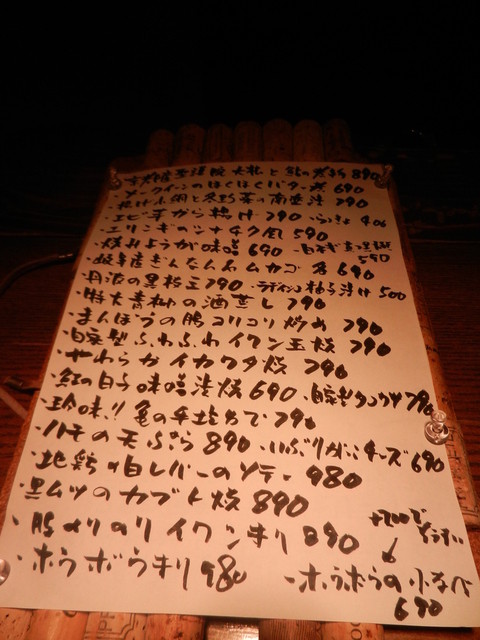 ・メークインのほくほくバター煮 690
・揚げ小鯛と冬野菜の南蛮漬 790
・エビ芋がら揚げ 790 ・らっきょ 400
・エリンギのシナチク風 590
・焼みょうが味噌 690
590
・岐阜産ぎんなん&ムカゴ 各690
・丹波の黒枝豆 790 ・ラディッシュ柚子漬け 500
・特大青柳の酒蒸し 790
・まんぼうの腸コリコリ炒め 790
・自家製ふわふわイワシ玉焼 790
・やわらかイカワタ焼 790
・紅の白子味噌漬焼 690 ・自家製タコワサ 790
・珍味!!亀の手塩ゆで 790
・ハモの天ぷら 890 ・いぶりがっこチーズ 690
・地鶏の白レバーのソテー 980
・黒ムツのカブト焼 890
・脂メリのり イワシきり 890
・ホウボウきり 980
+200で
ぞうすい
・ホウボウの小なべ
690